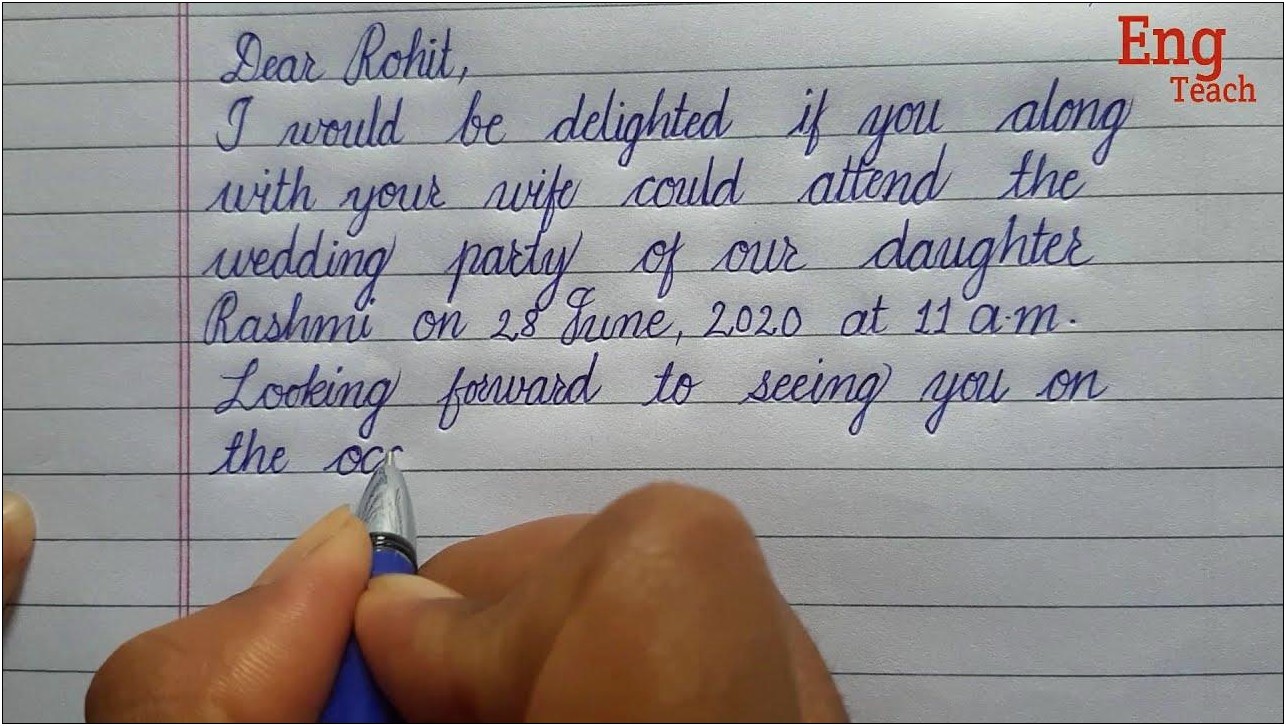 Eng
Teach
Dear Rohit,
I would be delighted if you along
with your wife could attend the
wedding party of our daughter
Rashmi on 28 June, 2020 at 11 a.m.
Looking forward to seeing you on
the